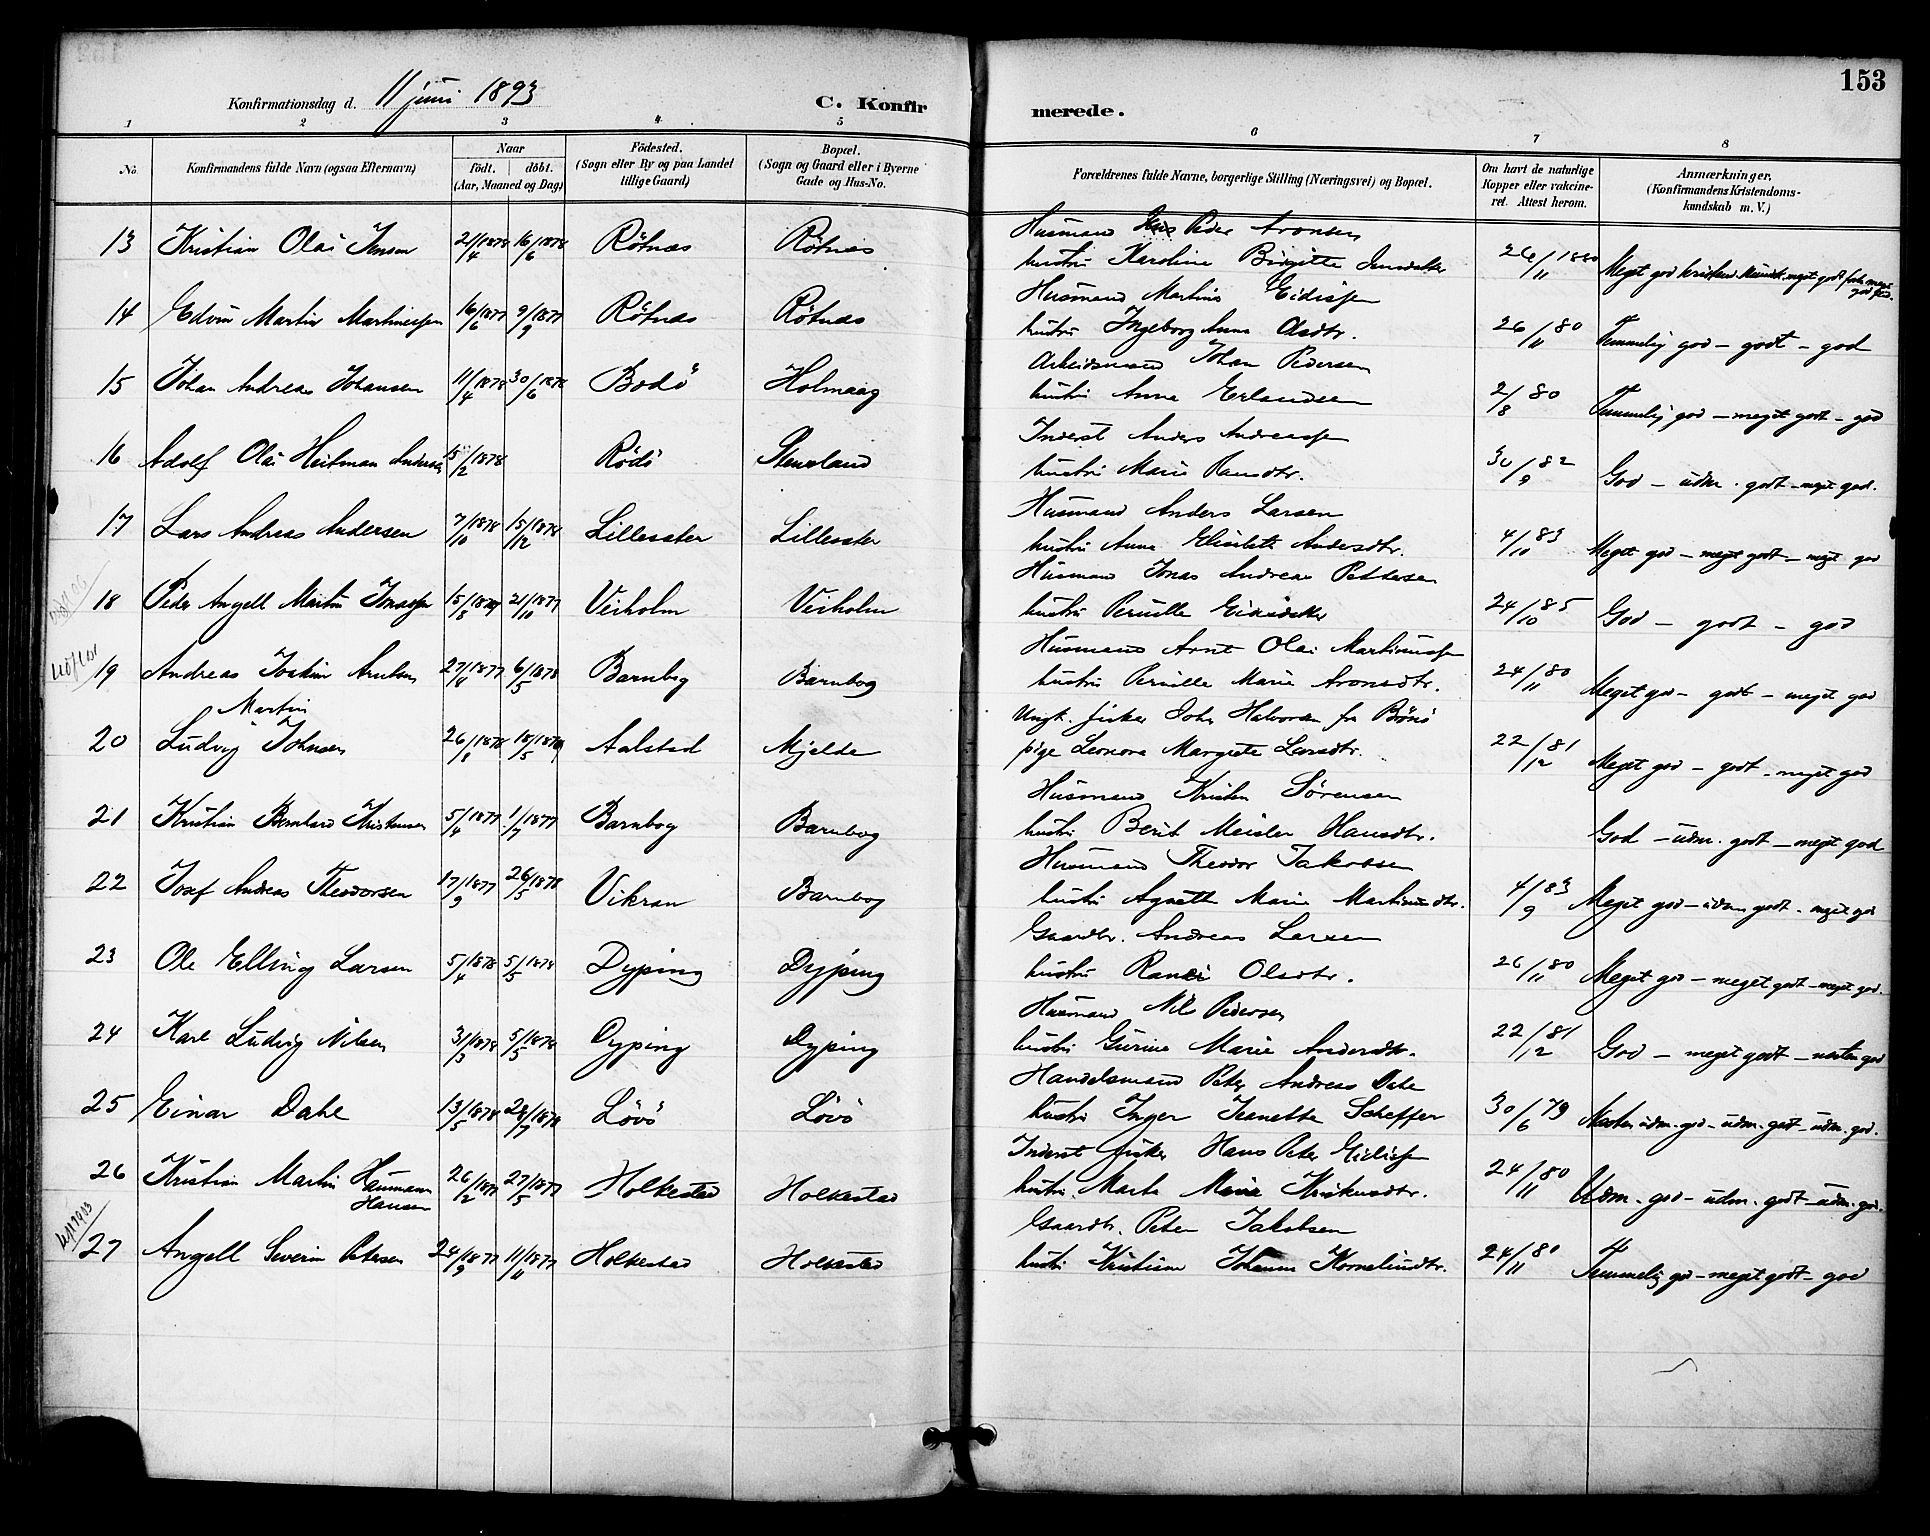 153
Konfirmationsdag d. 11 juni 1893 C. Konfirmerede.
1 2 3 4 5 6 7 8
No. Konfirmandens fulde Navn (ogsaa Efternavn) Naar födt. döbt. (Aar, Maaned og Dag) Födested. (Sogn eller By og paa Landet tillige Gaard) Bopæl. (Sogn og Gaard eller i Byerne Gade og Hus-No. Forældrenes fulde Navne, borgerlige Stilling (Næringsvei) og Bopæl. Om havt de naturlige Kopper eller vakcineret. Attest herom. Anmærkninger. (Konfirmandens Kristendomskundskab m. V.)
Husmand Jens Peder Aronsen
13 Kristian Olai Jensen 21/4 1878 16/6 1878 Rötnes Rötnes hustru Karoline Birgitte Jensdatter 26/11 1880 Meget god
Husmand Martin Eidissen
14 Edvin Martin Martinussen 16/6 1877 9/9 1877 Rötnes Rötnes hustru Ingeborg Anna Olsdtr. 26/11 80 Temmelig god – godt – god
Arbeidsmand Johan Pedersen
15 Johan Andreas Johansen 11/4 1878 30/6 1878 Bodö Holmaag hustru Anna Erlandsen 2/8 80 Temmelig god – meget godt – god
Inderst Anders Andreassen
16 Adolf Olai Heitman Andersen 15/2 1878 Rödö Stenland hustru Marie Hansdtr. 30/9 82 God – udm. godt – meget god.
Husmand Anders Larsen
17 Lars Andreas Andersen 7/10 1878 15/12 1878 Lillesæter Lillesæter hustru Anna Elisabeth Andersdtr. 4/10 83 Meget god – meget godt – meget god
Husmand Jonas Andreas Pettersen
18 Peder Angell Martin Jonassen 15/8 1877 21/10 1877 Veiholm Veiholm hustru Pernille 24/10 85 God – godt – god
Husmand Arnt Olai Martinussen
19 Andreas Joakim Arntsen 27/11 1877 6/5 1878 Barnbog Barnbog hustru Pernille Marie Aronsdtr. 24/11 80 Meget god – godt – meget god
Martin
Ungk. fisker Johs Halvorsen fra Bönö
20 Ludvig Johnsen 26/2 1878 18/5 1879 Aalstad Mjelde pige Leonora Margrete Larsdtr. 22/12 81 Meget god – godt – meget god
Husmand Kristen Sörensen
21 Kristian Bernhard Kristensen 5/4 1877 1/7 1877 Barnbog Barnbog hustru Berit Meisler Hansdtr. God – udm. godt – meget god
Husmand Theodor Jakobsen
22 Josef Andreas Theodorsen 17/9 1877 26/5 1878 Vikran Barnbog hustru Agnette Marie Martinusdtr. 4/9 83 Meget god – udm godt – meget god
Gaardbr. Andreas Larsen
23 Ole Elling Larsen 5/4 1878 5/5 1878 Dyping Dyping hustru Olsdtr. 26/11 80 Meget god – meget godt – meget god.
Husmand Nils Pedersen
24 Karl Ludvig Nilsen 31/3 1878 5/5 1878 Dyping Dyping hustru Gurine Marie Andersdtr. 22/12 81 God – meget godt – næsten god
Handelsmand Peter Andreas Dahl
25 Einar Dahl 13/5 1878 28/7 1878 Lövö Lövö hustru Inger Jeanette Scheffer 30/6 79 Næsten udm. god – udm. godt – udm. god.
Inderst fisker Hans Peter Eidissen
26 Kristian Martin Haumann Hansen 26/2 1877 27/5 1877 Holkestad Holkestad hustru Marta Marie 24/11 80 Udm. god – udm. godt – udm. god.
Gaardbr. Peter Jakobsen
27 Angell Severin Petersen 24/9 1877 11/11 1877 Holkestad Holkestad hustru Kristiane Johanna Korneliusdtr. 24/11 80 Temmelig god – meget godt – god